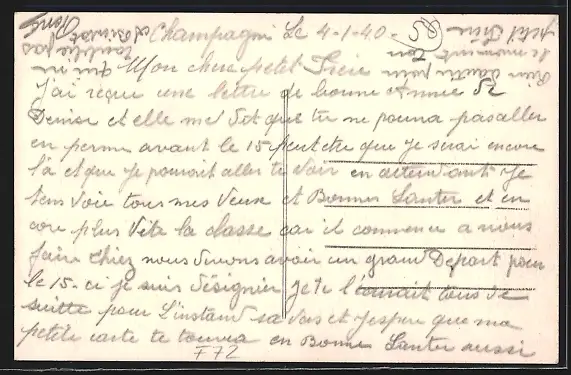 Champagni Le 4-1-40-
Mon cher petit Frère
J'ai reçue une lettre de bonne Année de
Denise et elle me dit que tu ne pourra pas aller
en perme avant le 15 peut etre que je serai encore
la et que je pourait aller te voir en attendant Je
tenvoie tous mes Veux et Bonnes Santer et en
core plus Vite la classe car il commence a nous
faire chiez nous devons avoir un grand Depart pour
le 15-ci je suis désignier Je te l'ecrirait tous de
suitte pour L'instand sa vas et Jespere que ma
petite carte te touvera en Bonne Santer aussi
F72
Rien dautre pour
le moment Ton
petit Frère
qui ne
toublie pas